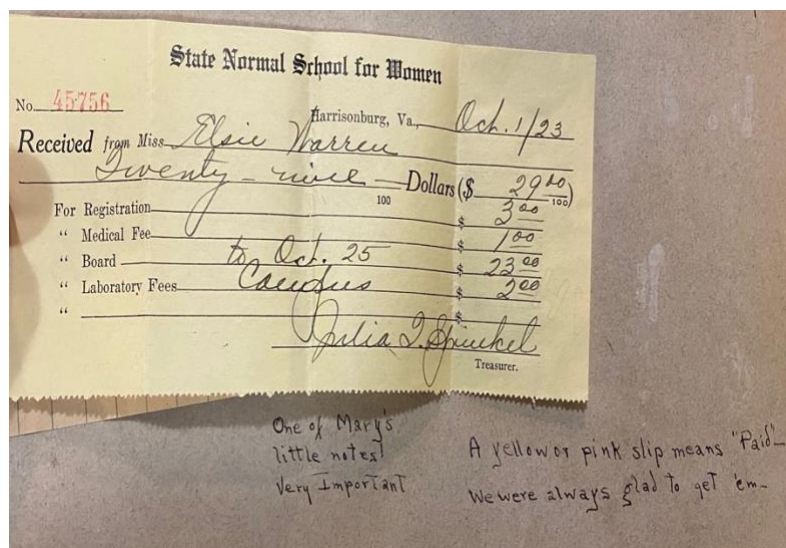 State Normal School for Women
No. 45756
Harrisonburg, Va., Oct. 1/23
Received from Miss Elsie Warren
Twenty-nine Dollars ($ 29 00/100)
100
For Registration $ 3 00
" Medical Fee $ 1 00
" Board to Oct. 25 $ 23 00
" Laboratory Fees Campus $ 2 00
" $
Treasurer.
One of Mary's
little notes!
Very Important
A yellow or pink slip means "Paid"-
We were always glad to get 'em-